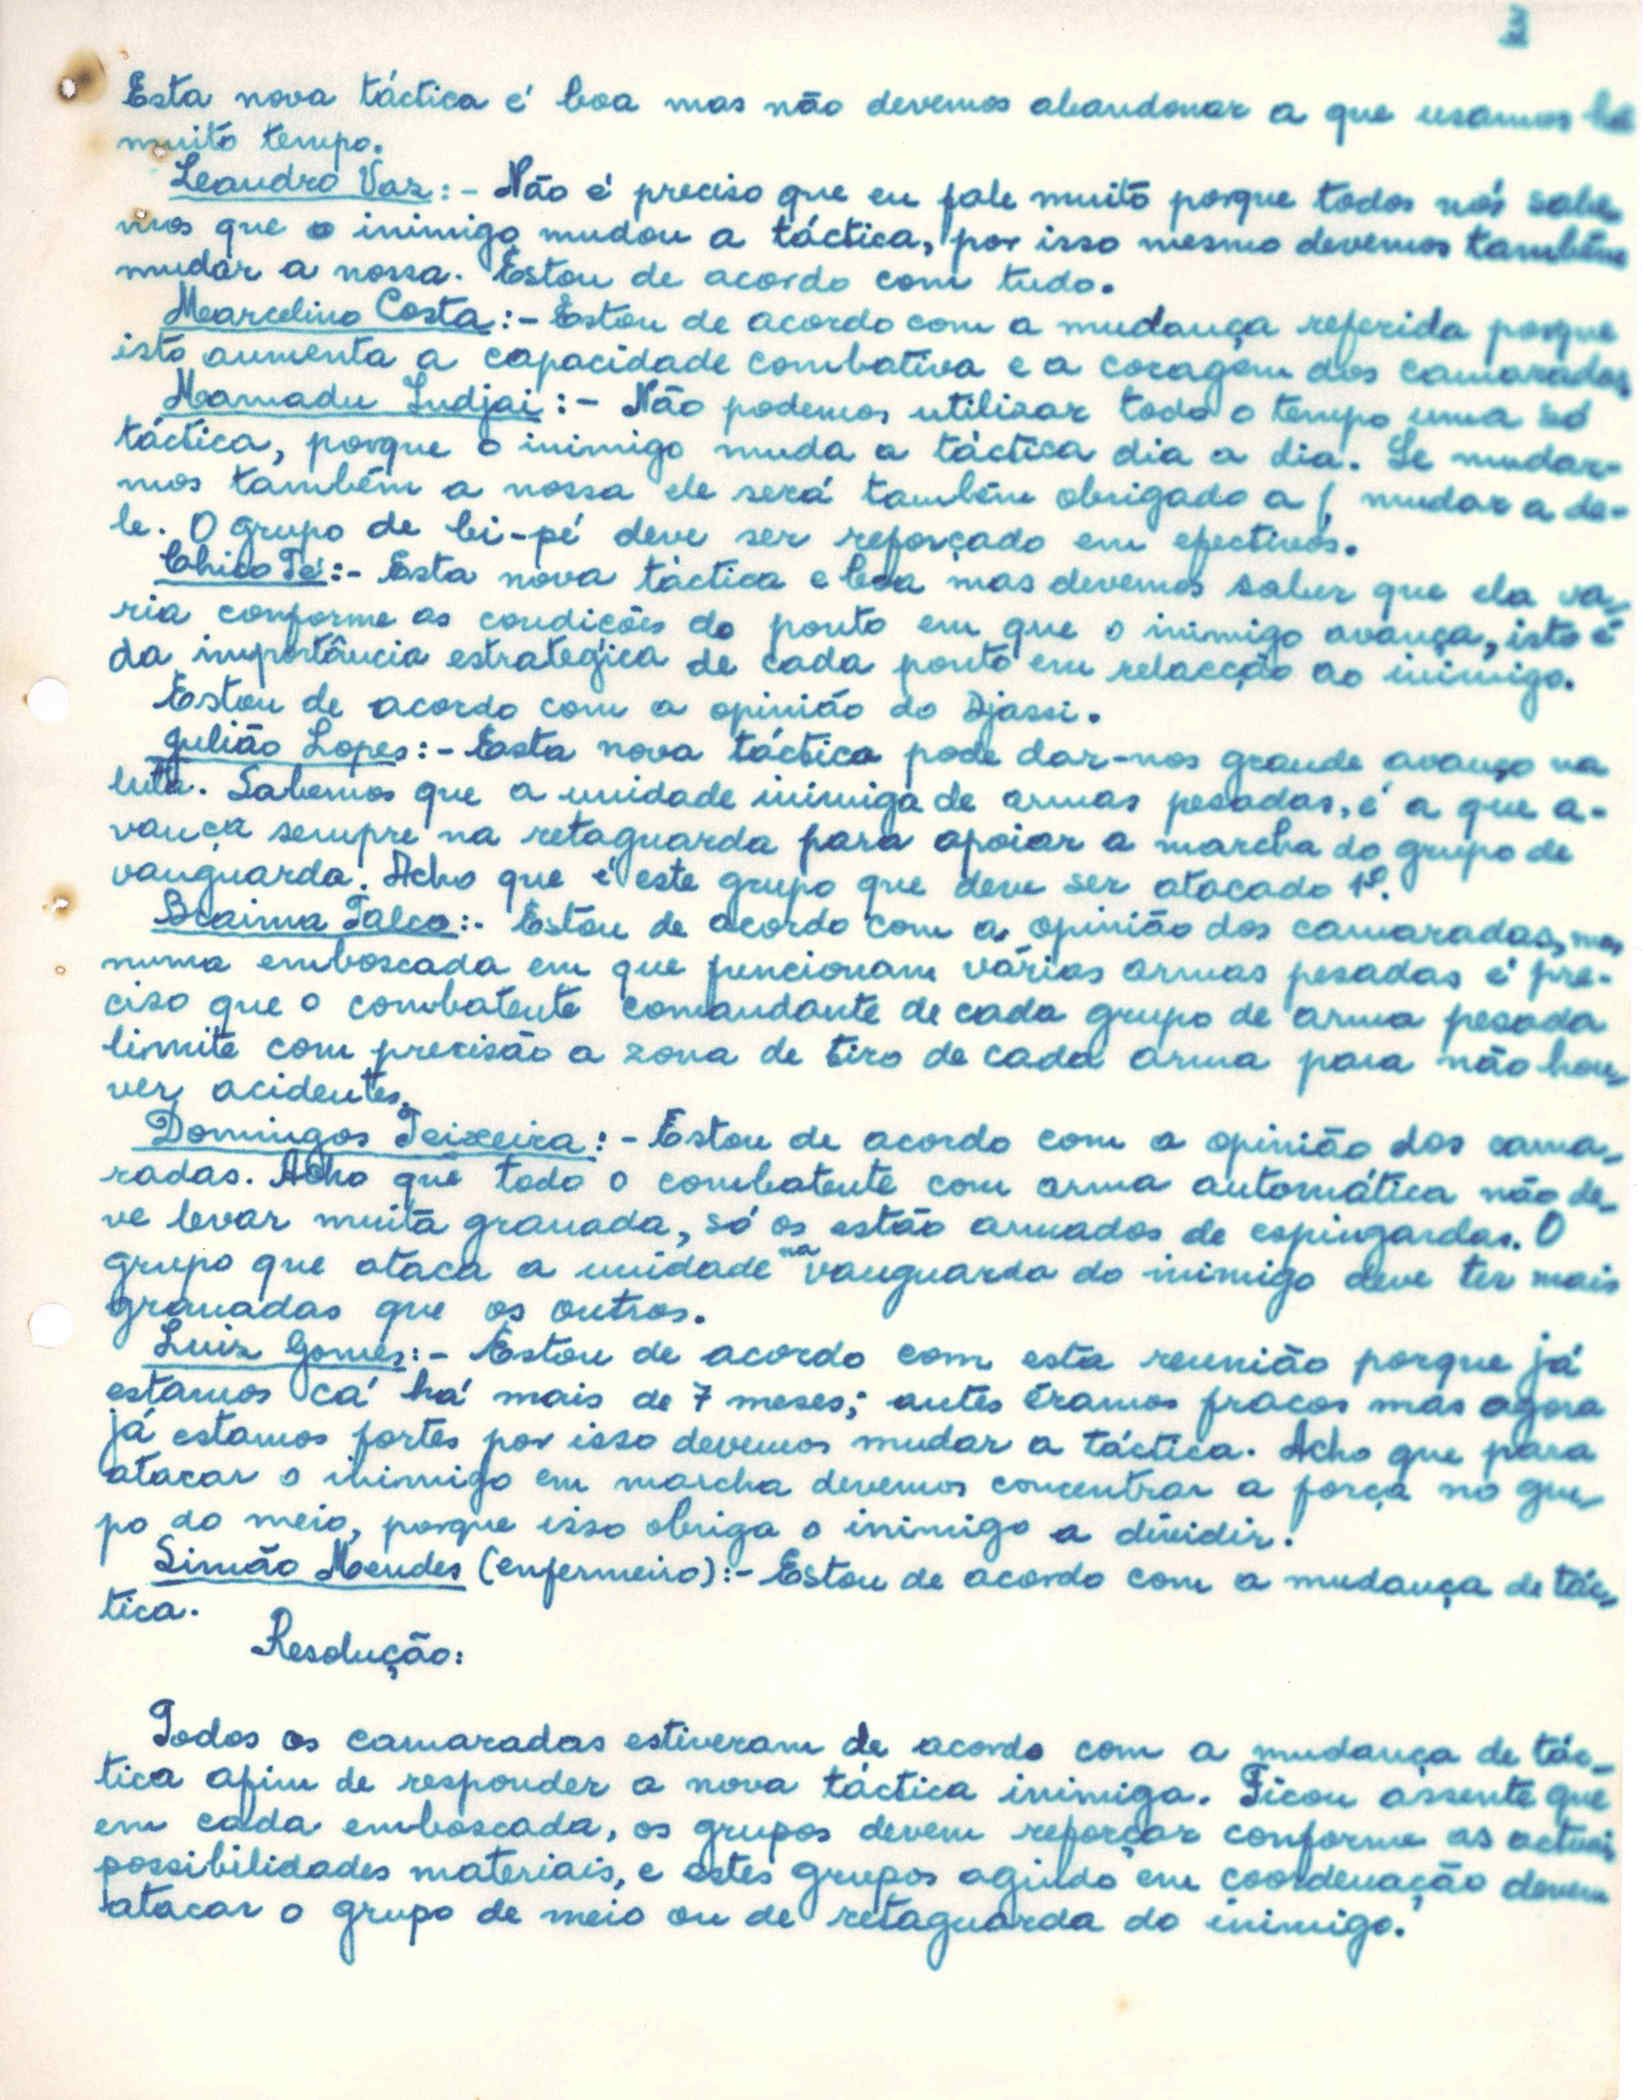 3
Esta nova táctica é boa mas não devemos abandonar a que usamos há
muito tempo.
Leandro Vaz:- Não é preciso que eu fale muito porque todos nós sabe
mos que o inimigo mudou a táctica, por isso mesmo devemos também
mudar a nossa. Estou de acordo com tudo.
Marcelino Costa:- Estou de acordo com a mudança referida porque
isto aumenta a capacidade combativa e a coragem dos camaradas.
Mamadu Indjai:- Não podemos utilizar todo o tempo uma só
táctica, porque o inimigo muda a táctica dia a dia. Se mudar-
mos também a nossa ele será também obrigado a mudar a de-
le. O grupo de bi-pé deve ser reforçado em efectivos.
Chico Té:- Esta nova táctica e boa mas devemos saber que ela va-
ria conforme as condições do ponto em que o inimigo avança, isto é
da importância estratégica de cada ponto em relacção ao inimigo.
Estou de acordo com a opinião do Djassi.
Julião Lopes:- Easta nova táctica pode dar-nos grande avanço na
luta. Sabemos que a unidade inimiga de armas pesadas, é a que a-
vança sempre na retaguarda para apoiar a marcha do grupo de
vanguarda. Acho que é este grupo que deve ser atacado 1º.
Braima Falco:- Estou de acordo com a opinião dos camaradas, mas
numa emboscada em que funcionam várias armas pesadas é pre-
ciso que o combatente comandante de cada grupo de arma pesada
limite com precisão a zona de tiro de cada arma para não hou-
ver acidentes.
Domingos Teixeira:- Estou de acordo com a opinião dos cama-
radas. Acho que todo o combatente com arma automática não de-
ve levar muita granada, só os estão armados de espingardas. O
grupo que ataca a unidade na vanguarda do inimigo deve ter mais
granadas que os outros.
Luiz Gomes:- Estou de acordo com esta reunião porque já
estamos cá há mais de 7 meses; antes éramos fracos mas agora
já estamos fortes por isso devemos mudar a táctica. Acho que para
atacar o inimigo em marcha devemos concentrar a força no gru-
po do meio, porque isso obriga o inimigo a dividir.
Simão Mendes (enfermeiro):- Estou de acordo com a mudança de tác-
tica.
Resolução:
Todos os camaradas estiveram de acordo com a mudança de tác-
tica afim de responder a nova táctica inimiga. Ficou assente que
em cada emboscada, os grupos devem reforçar conforme as actuais
possibilidades materiais, e estes grupos agindo em coordenação devem
atacar o grupo de meio ou de retaguarda do inimigo.